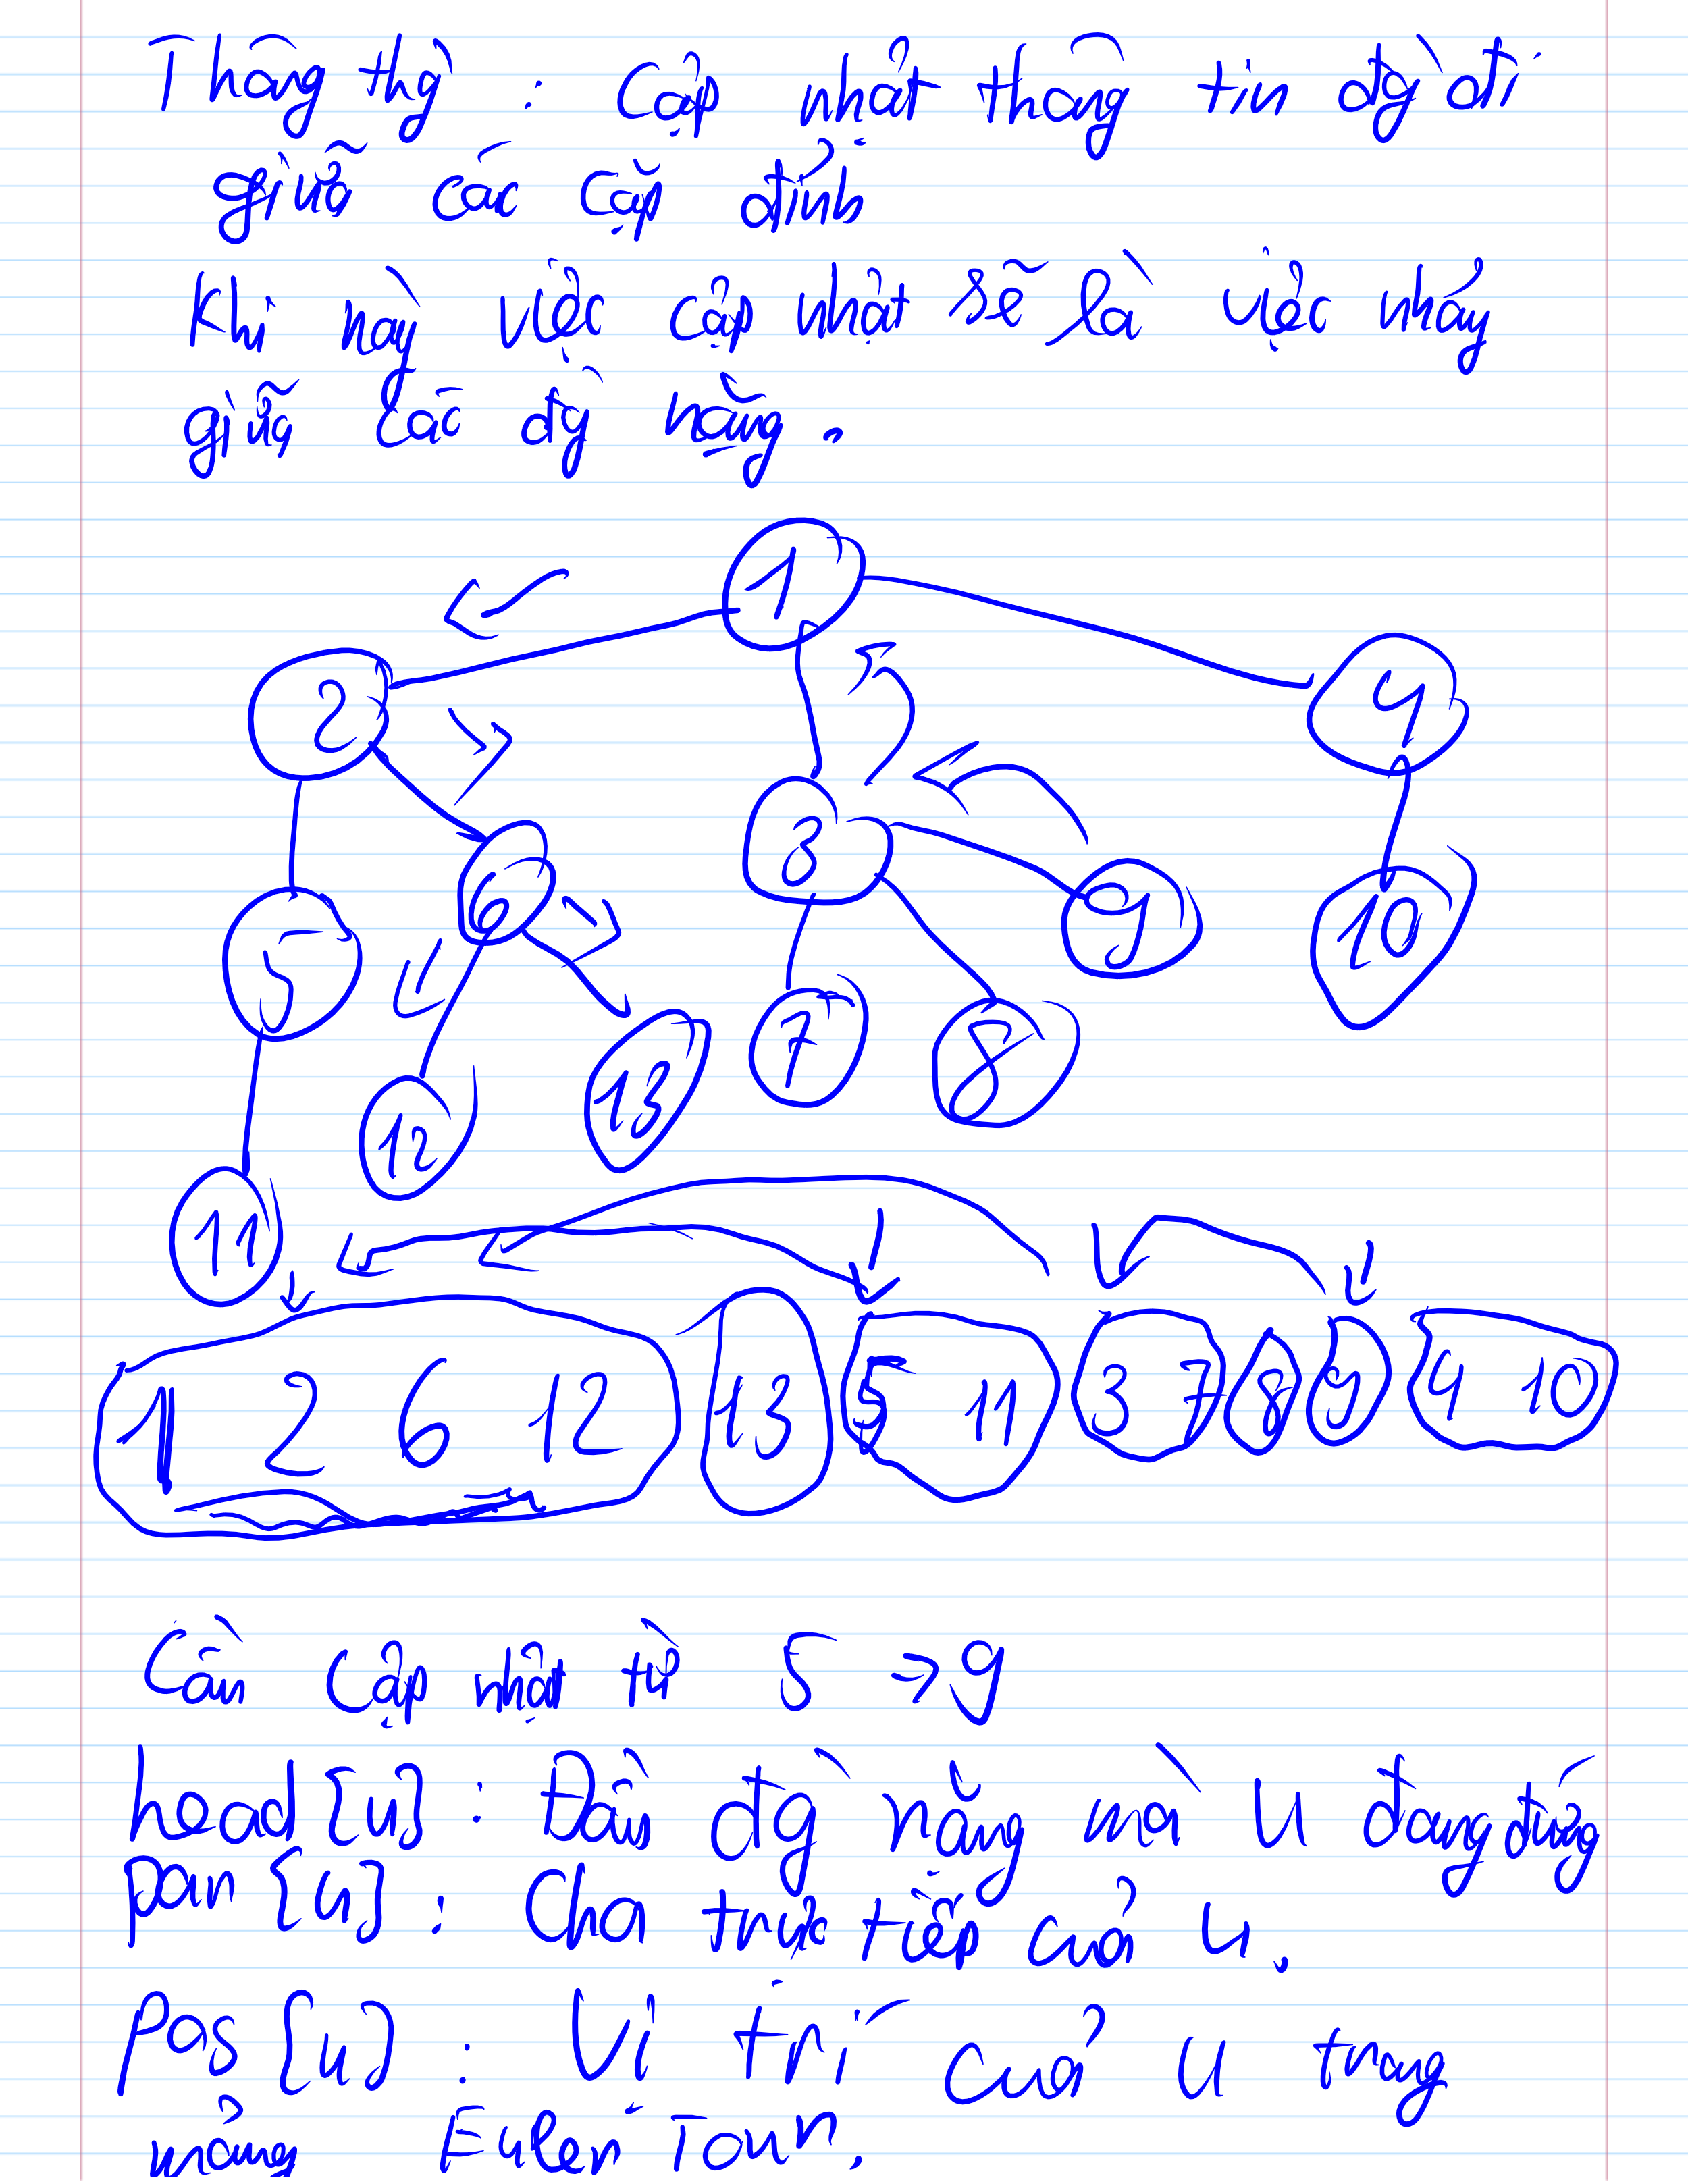 Thông thg : Cập nhật thông tin đg đi
giữa các cặp đỉnh
Khi này việc cập nhật sẽ là việc nhảy
giữa các đg nặng.
1
2
4
3
6
9
5
10
7
8
13
12
11
1 2 6 12 13 5 11 3 7 8 9 4 10
Cần cập nhật từ 5 -> 9
head [u] : Đầu đg nặng mà u đang đứng
par [u] : Cha trực tiếp của u.
Pos [u] : Vị trí của u trong
mảng Euler Tour.